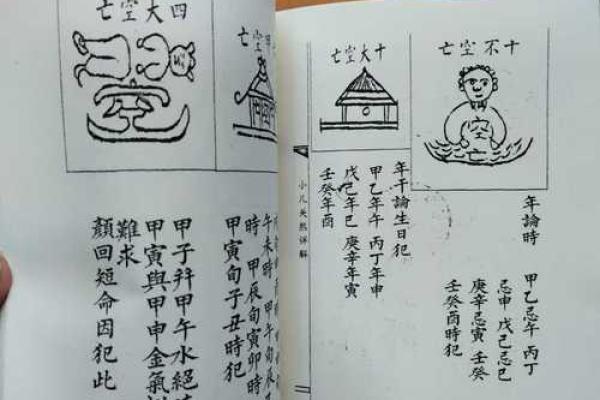 十不空亡
空
年論時
甲乙忌午 丙丁
忌申 戊己忌巳
庚辛忌寅 壬癸
壬癸酉時犯
十大空亡
年干論生日犯
甲乙年午 丙丁年申
戊己年巳 庚辛年寅
壬癸年酉
小儿关煞详解
空亡
午未時 甲午旬辰
時 甲辰旬寅卯時
甲寅旬子丑時犯
四大空亡
空
甲子幷甲午水絕
甲寅與甲申金氣
難求
顏回短命因犯此